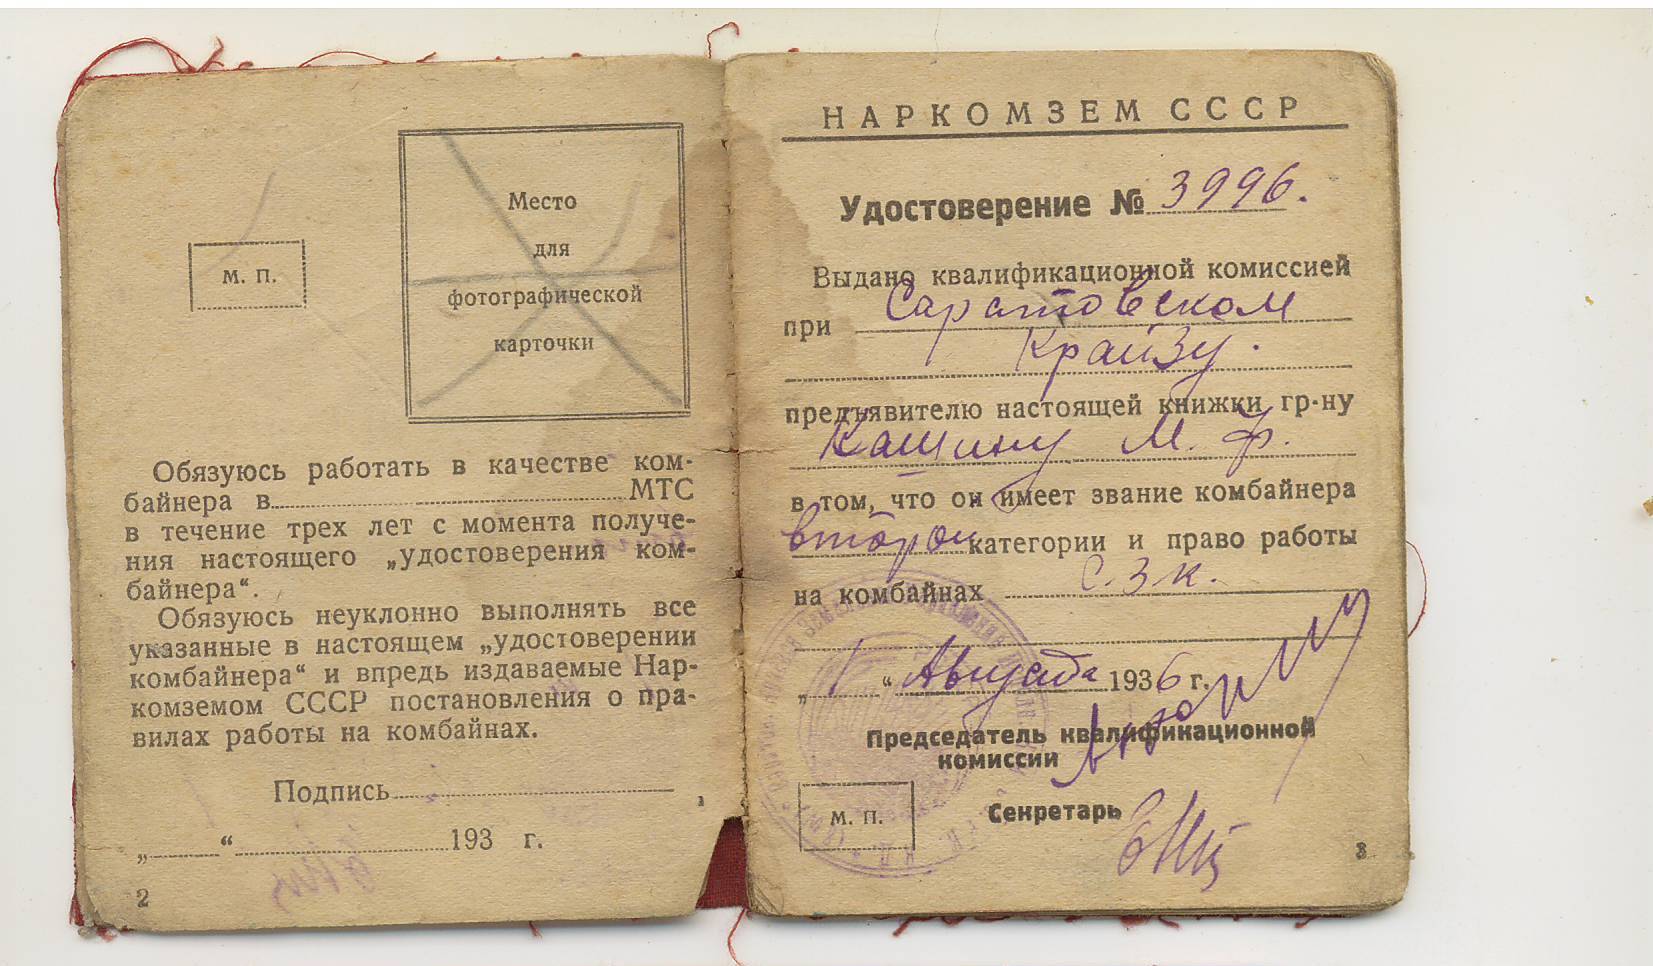 М. П.
Место
для
фотографической
карточки
Обязуюсь работать в качестве ком-
байнера в МТС
в течение трех лет с момента получе-
ния настоящего „удостоверения ком-
байнера“.
Обязуюсь неуклонно выполнять все
указанные в настоящем „удостоверении
комбайнера“ и впредь издаваемые Нар-
комземом СССР постановления о пра-
вилах работы на комбайнах.
Подпись
„ “ 193 г.
2
НАРКОМЗЕМ СССР
Удостоверение № 3996.
Выдано квалификационной комиссией
при Саратовском
КрайЗу.
предъявителю настоящей книжки гр-ну
Кашину М. Ф.
в том, что он имеет звание комбайнера
второй категории и право работы
на комбайнах С.З.К.
„1“ Августа 1936 г.
Председатель квалификационной
комиссии
Секретарь
М. П.
3